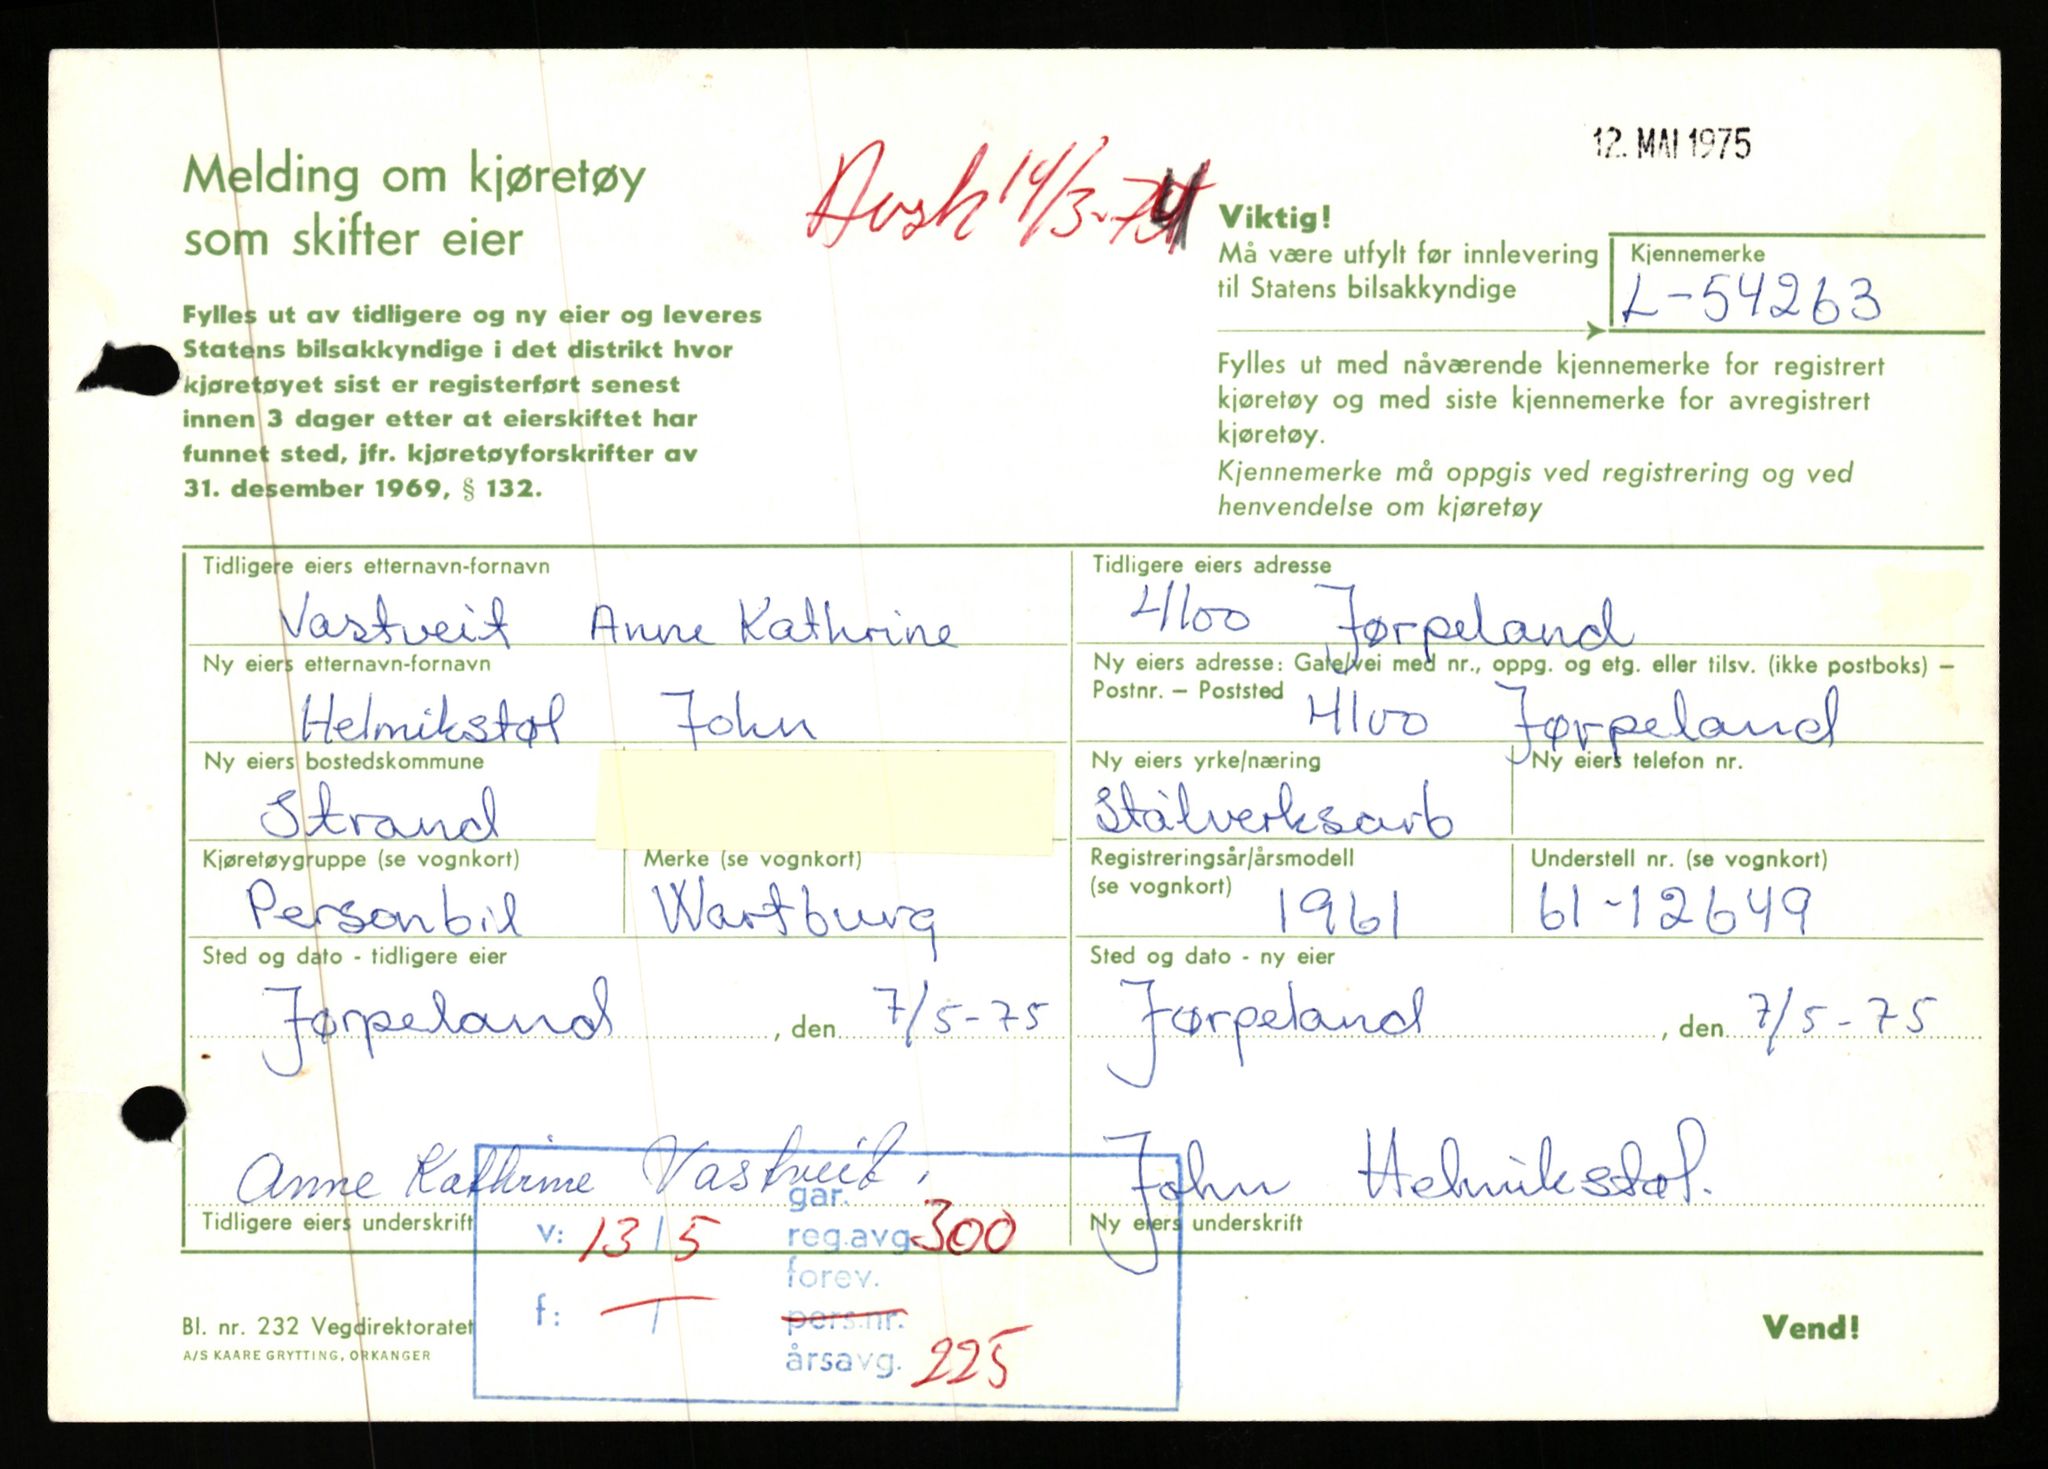 12. MAI 1975
Melding om kjøretøy
som skifter eier
Avsk 14/3-74
Fylles ut av tidligere og ny eier og leveres
Statens bilsakkyndige i det distrikt hvor
kjøretøyet sist er registerført senest
innen 3 dager etter at eierskiftet har
funnet sted, jfr. kjøretøyforskrifter av
31. desember 1969, § 132.
Viktig!
Må være utfylt før innlevering
til Statens bilsakkyndige
Kjennemerke
L-54263
Fylles ut med nåværende kjennemerke for registrert
kjøretøy og med siste kjennemerke for avregistrert
kjøretøy.
Kjennemerke må oppgis ved registrering og ved
henvendelse om kjøretøy
Tidligere eiers etternavn-fornavn
Vastveit Anne Kathrine
Tidligere eiers adresse
4100 Jørpeland
Ny eiers etternavn-fornavn
Helmikstøl John
Ny eiers adresse: Gate/vei med nr., oppg. og etg. eller tilsv. (ikke postboks) –
Postnr. – Poststed
4100 Jørpeland
Ny eiers bostedskommune
Strand
Ny eiers yrke/næring
Stålverksarb
Ny eiers telefon nr.
Kjøretøygruppe (se vognkort)
Personbil
Merke (se vognkort)
Wartburg
Registreringsår/årsmodell
(se vognkort)
1961
Understell nr. (se vognkort)
61-12649
Sted og dato - tidligere eier
Jørpeland, den 7/5-75
Sted og dato - ny eier
Jørpeland, den 7/5-75
Anne Kathrine Vastveit
Tidligere eiers underskrift
John Helmikstøl.
Ny eiers underskrift
gar.
v: 13/5
reg.avg. 300
forev.
f: /
pers.nr.
årsavg. 225
Bl. nr. 232 Vegdirektoratet
A/S KAARE GRYTTING, ORKANGER
Vend!